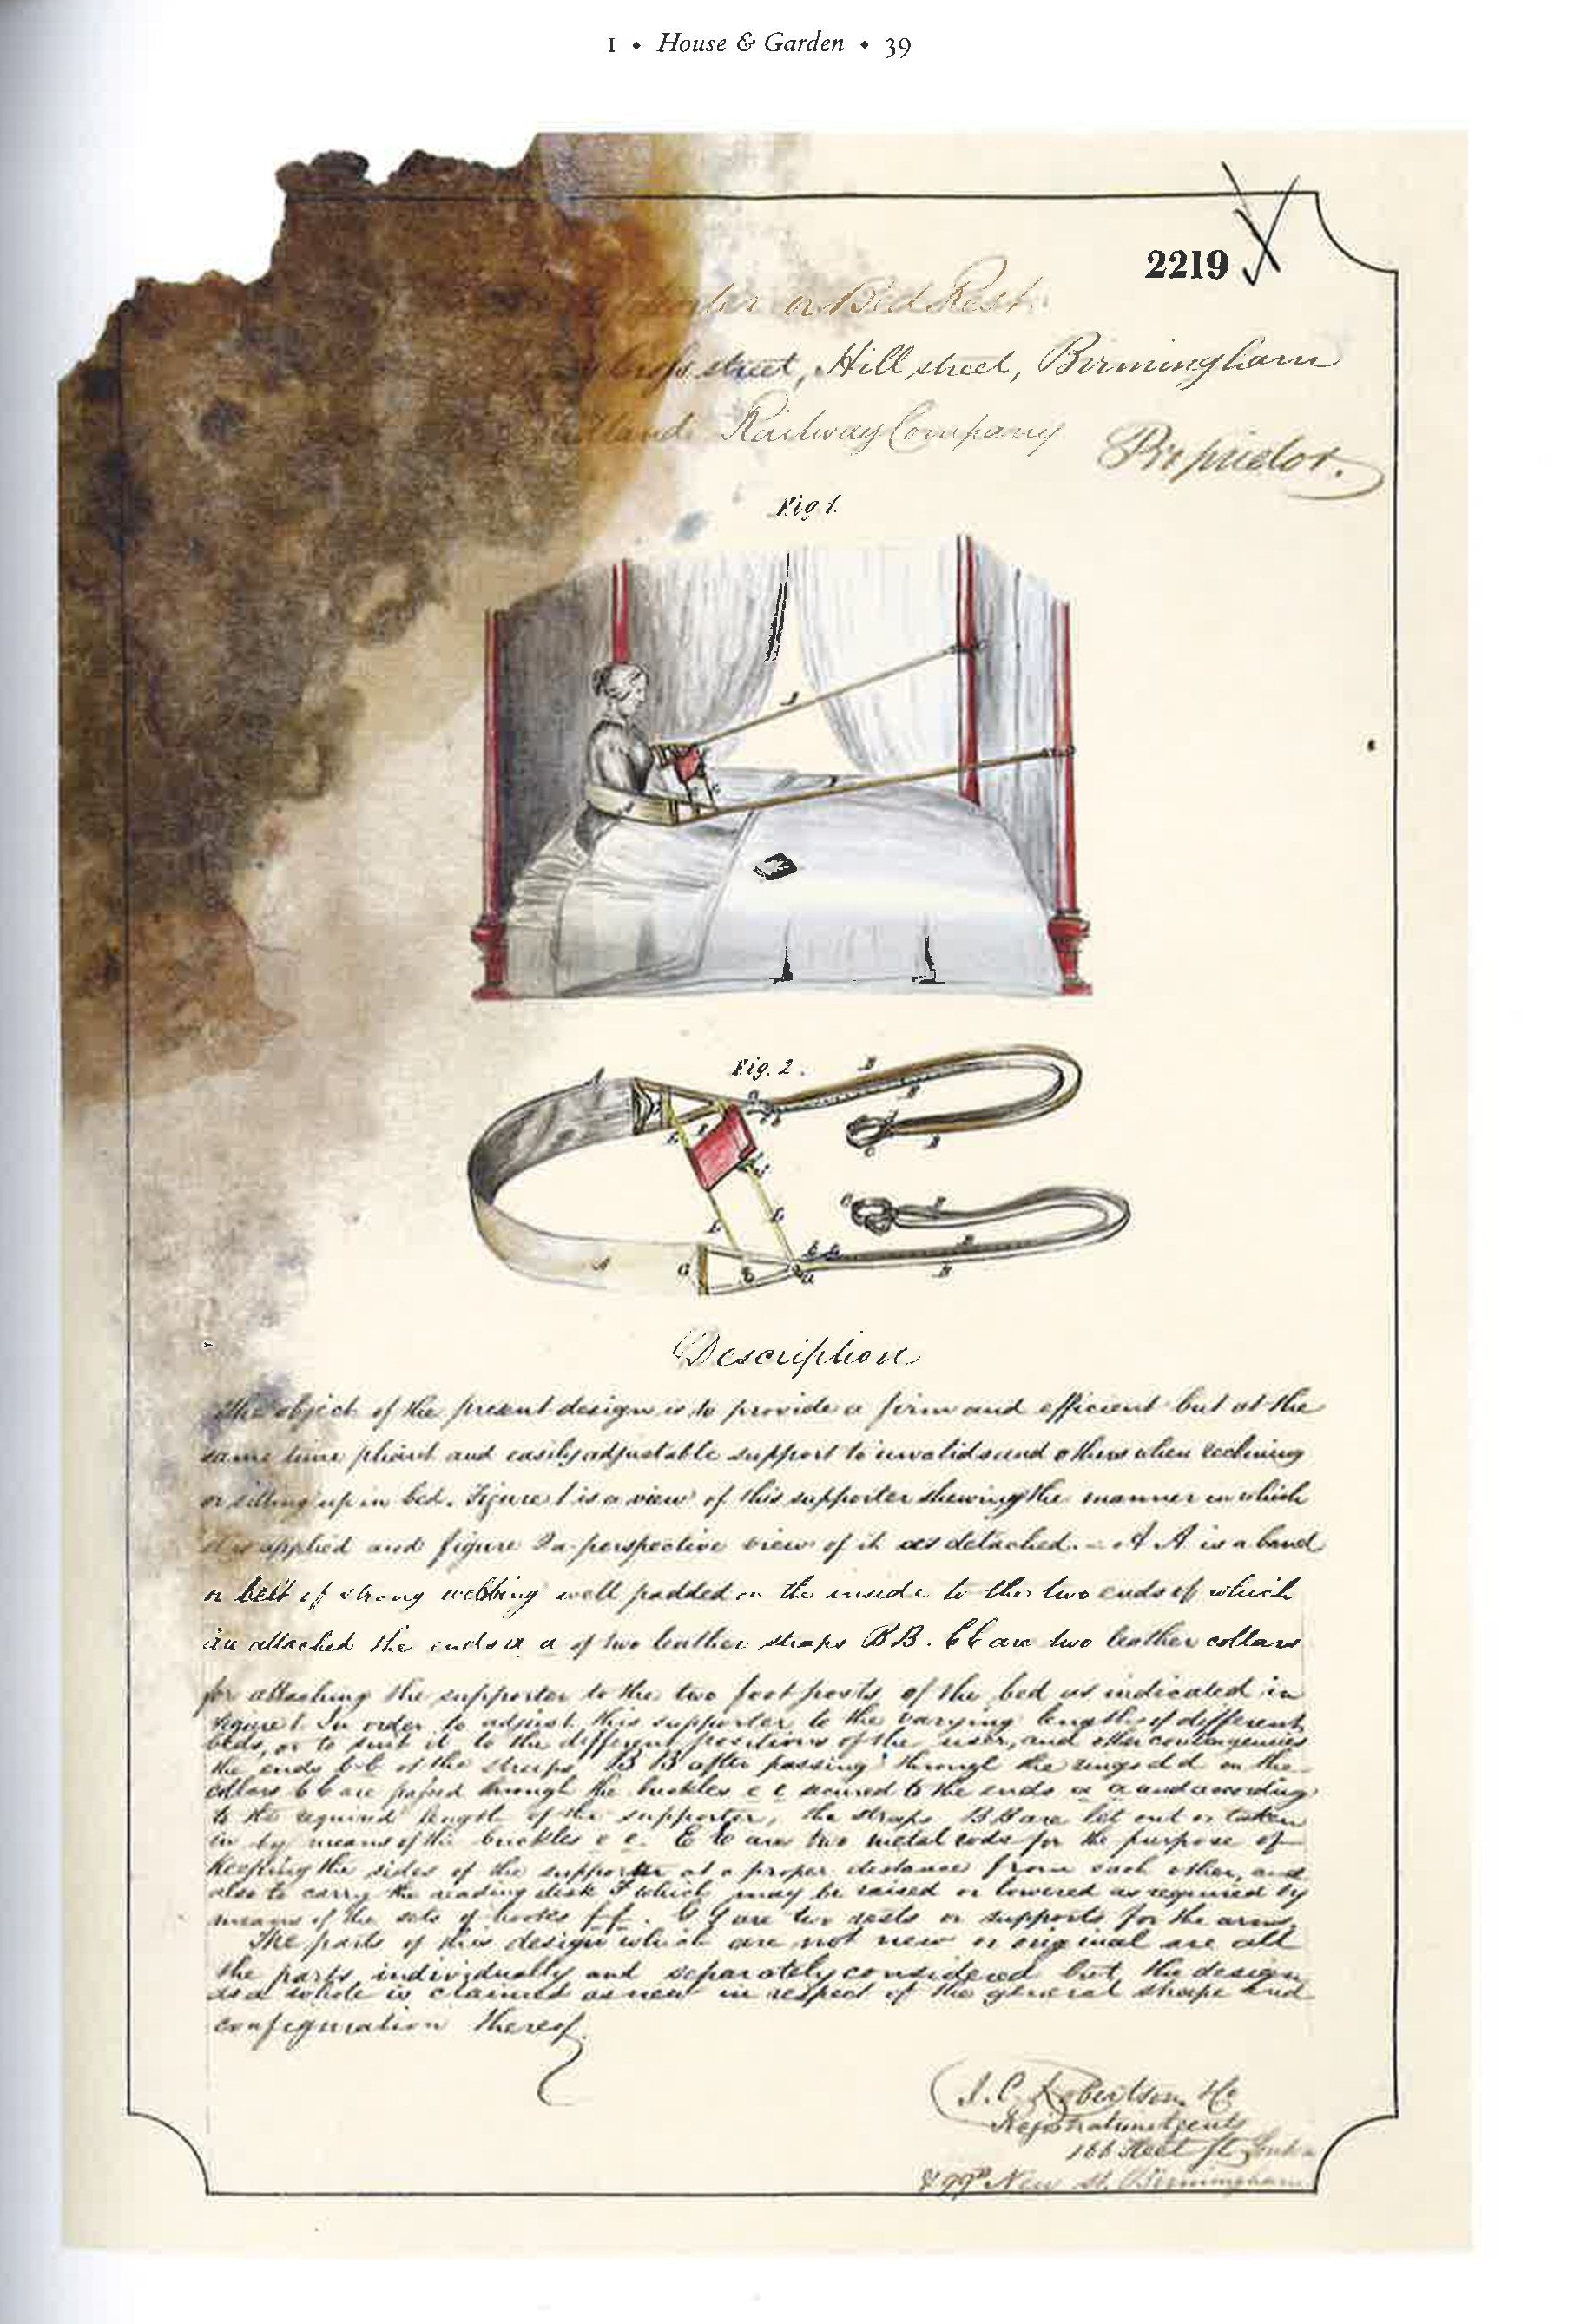 1 ◆ House & Garden ◆ 39
2219
or Bed Rest.
street, Hill street, Birmingham
Railway Company Proprietor.
Fig. 1.
Fig. 2.
Description
The object of the present design is to provide a firm and efficient but at the
same time pliant and easily adjustable support to invalids and others when reclining
or sitting up in bed. Figure 1 is a view of this supporter shewing the manner in which
it is applied and figure 2 a perspective view of it as detached. – A A is a band
or belt of strong webbing well padded on the inside to the two ends of which
are attached the ends a a of two leather straps B B. C C are two leather collars
for attaching the supporter to the two foot posts of the bed as indicated in
figure 1. In order to adjust this supporter to the varying lengths of different
beds, or to suit it to the different positions of the user, and other contingencies
the ends b b of the straps B B after passing through the rings d d on the
collars C C are passed through the buckles e e secured to the ends a a and according
to the required length of the supporter, the straps B B are let out or taken
in by means of the buckles e e. E E are two metal rods for the purpose of
keeping the sides of the supporter at a proper distance from each other, and
also to carry the reading desk F which may be raised or lowered as required by
means of the sets of hooks f f. G G are two rests or supports for the arms.
The parts of this design which are not new or original are all
the parts individually and separately considered but the design
as a whole is claimed as new in respect of the general shape and
configuration thereof.
J. C. Robertson & Co
Registration Agents
166 Fleet St. London
& 99 New St. Birmingham